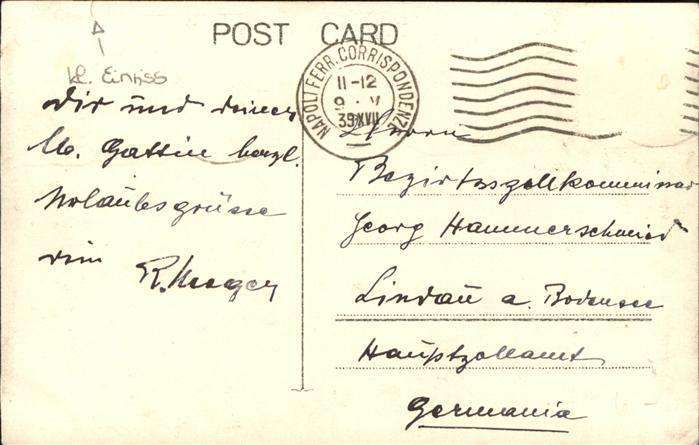 POST CARD
kl. Einriss
NAPOLI FERR. CORRISPONDENZE
11-12
9 · V
39 XVII
Dir und deiner
lb. Gattin herzl.
Urlaubsgrüsse
dein
Herrn
Bezirkszollkommissar
Georg Hammerschmied
Lindau a. Bodensee
Hauptzollamt
Germania